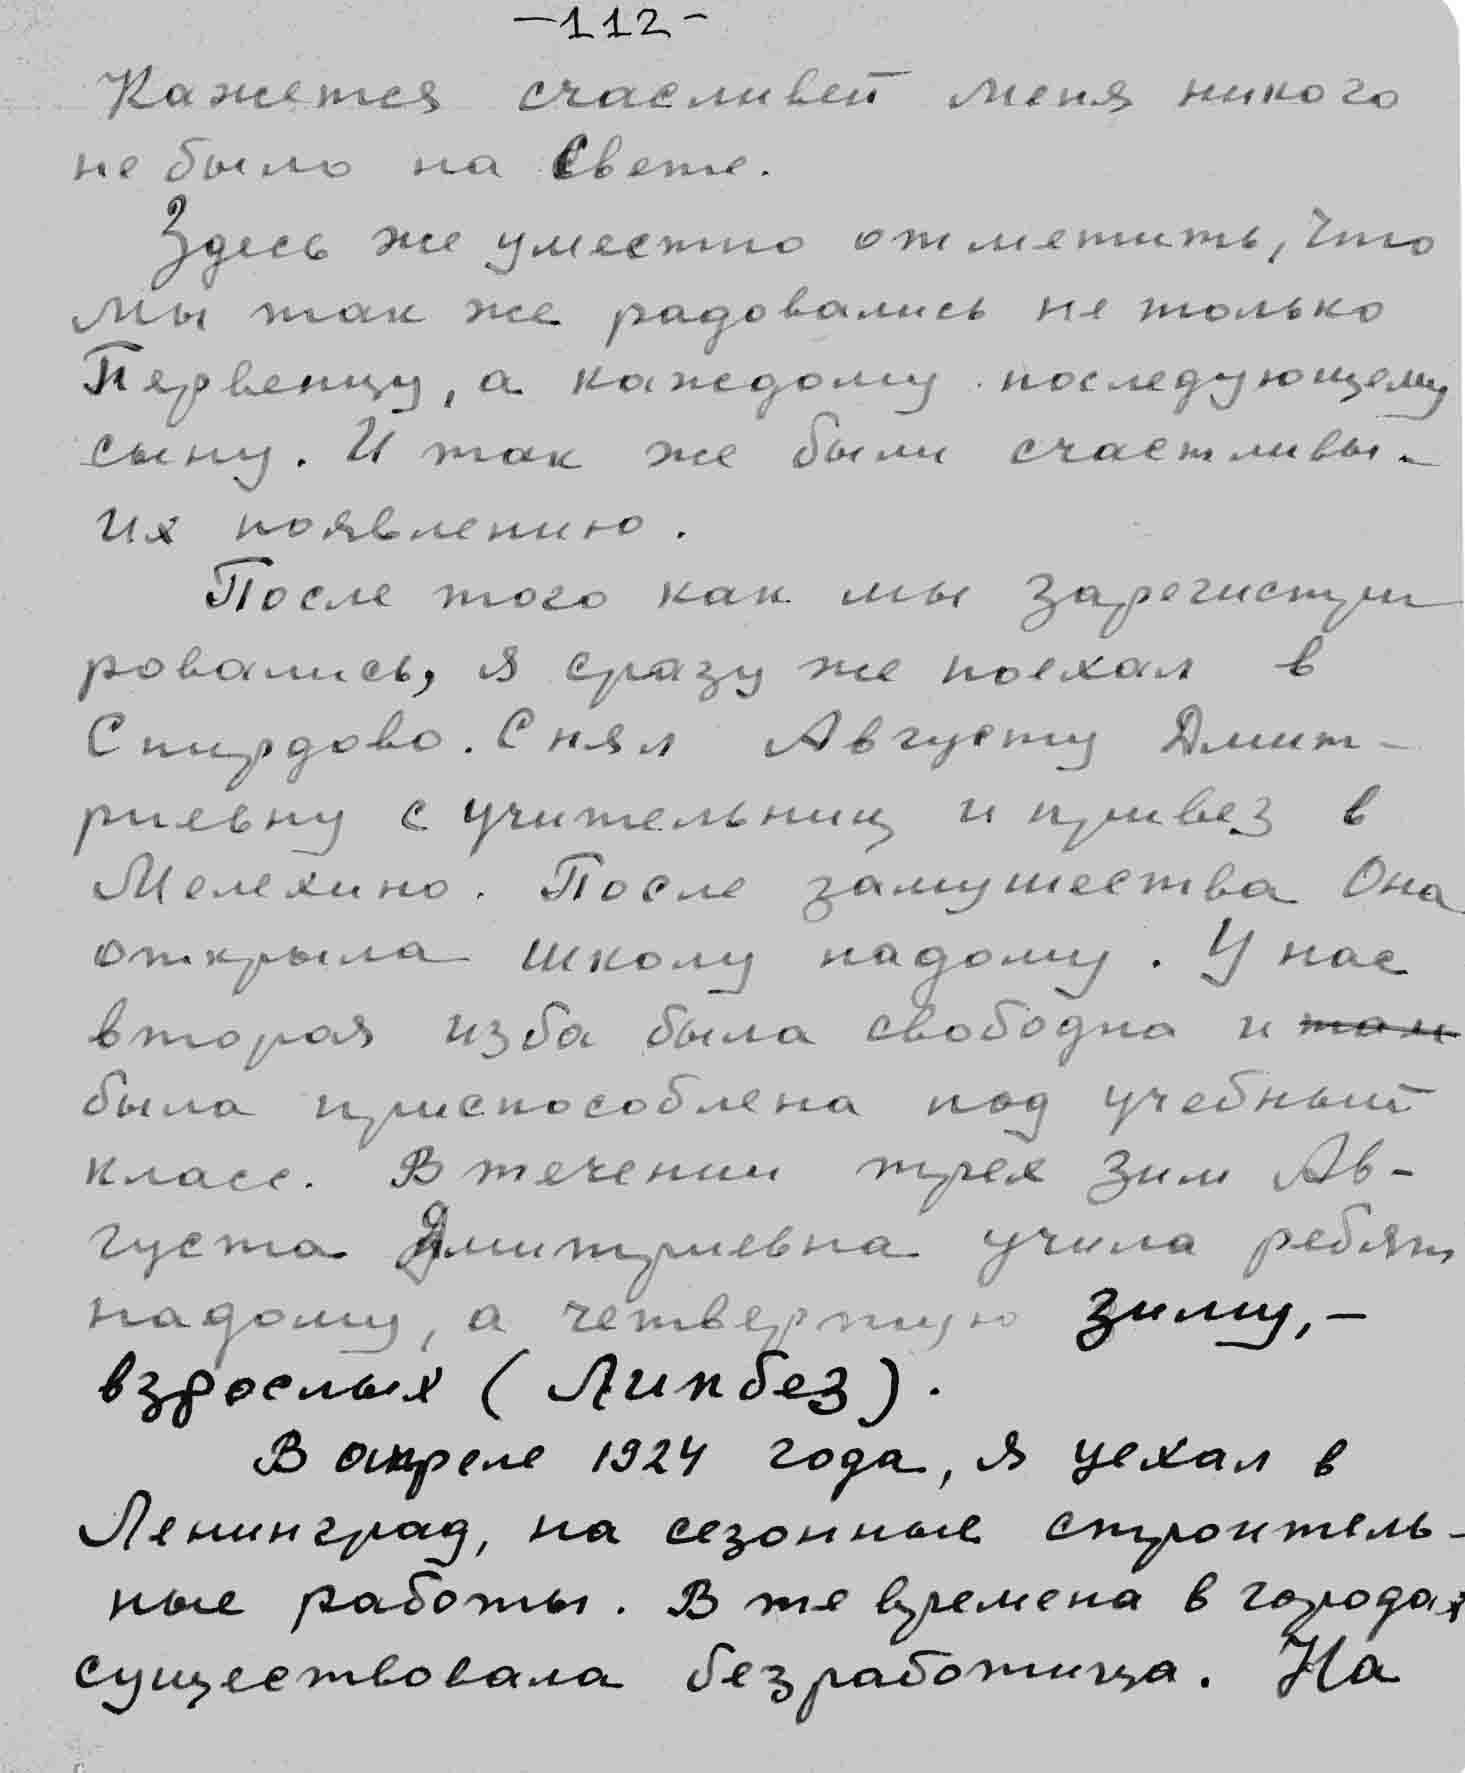 -112-
Кажется счасливей меня никого
не было на Свете.
Здесь же уместно отметить, что
мы так же радовались не только
Первенцу, а каждому последующему
сыну. И так же были счастливы-
их появлению.
После того как мы зарегистри
ровались, я сразу же поехал в
Спирдово. Снял Августу Дмит-
риевну с учительниц и привез в
Мелехино. После замушества Она
открыла школу надому. У нас
вторая изба была свободна и там
была приспособлена под учебный
класс. В течении трех зим Ав-
густа Дмитриевна учила ребят
надому, а четвертую зиму,-
взрослых (Ликбез).
В апреле 1924 года, я уехал в
Ленинград, на сезонные строитель-
ные работы. В те времена в городах
существовала безработица. На